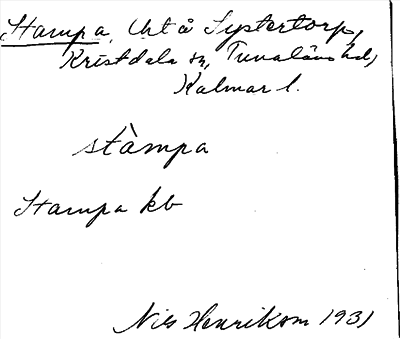 Stampa, Urt å Systertorp,
Kristdala sn, Tunaläns hd,
Kalmar l.
stàmpa
Stampa kb
Nils Henrikson 1931